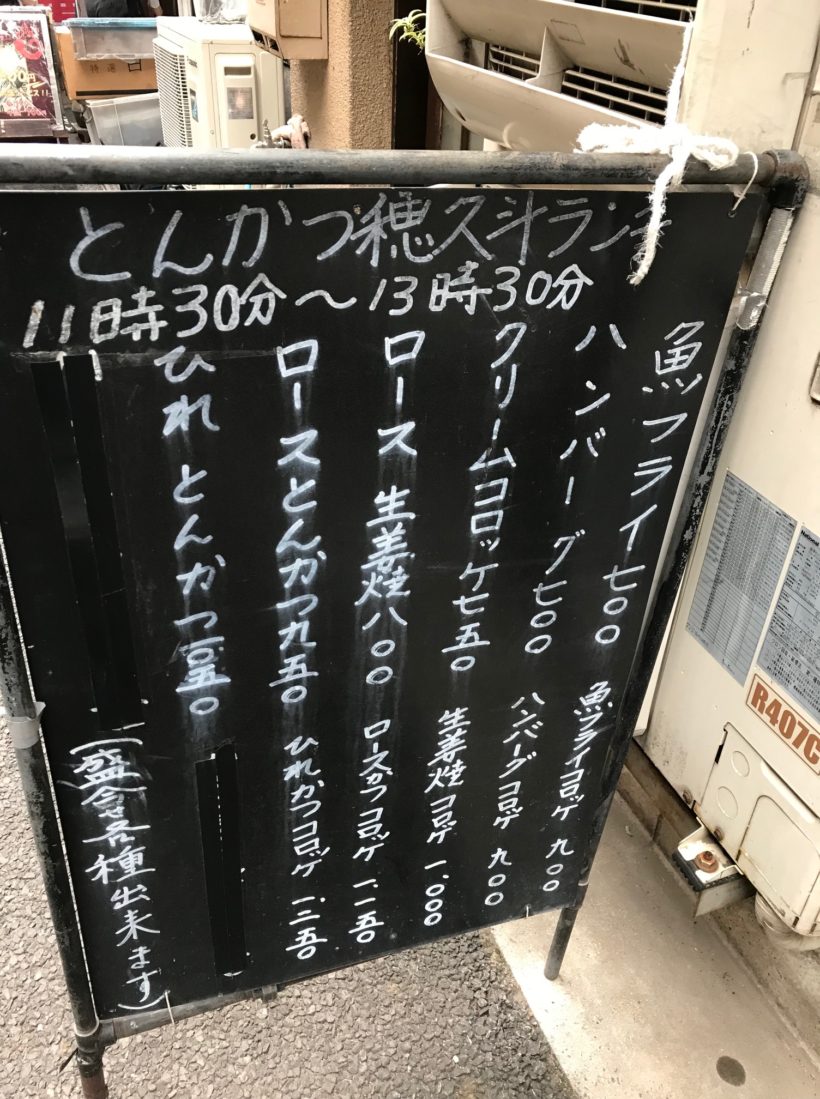 とんかつ穂久斗ランチ
11時30分～13時30分
魚フライ七〇〇
ハンバーグ七〇〇
クリームコロッケ七五〇
ロース生姜焼八〇〇
ロースとんかつ九五〇
ひれとんかつ一〇五〇
魚フライコロッケ 九〇〇
ハンバーグコロッケ 九〇〇
生姜焼コロッケ 一、〇〇〇
ロースかつコロッケ 一、一五〇
ひれかつコロッケ 一、二五〇
(盛合各種出来ます)
R407C